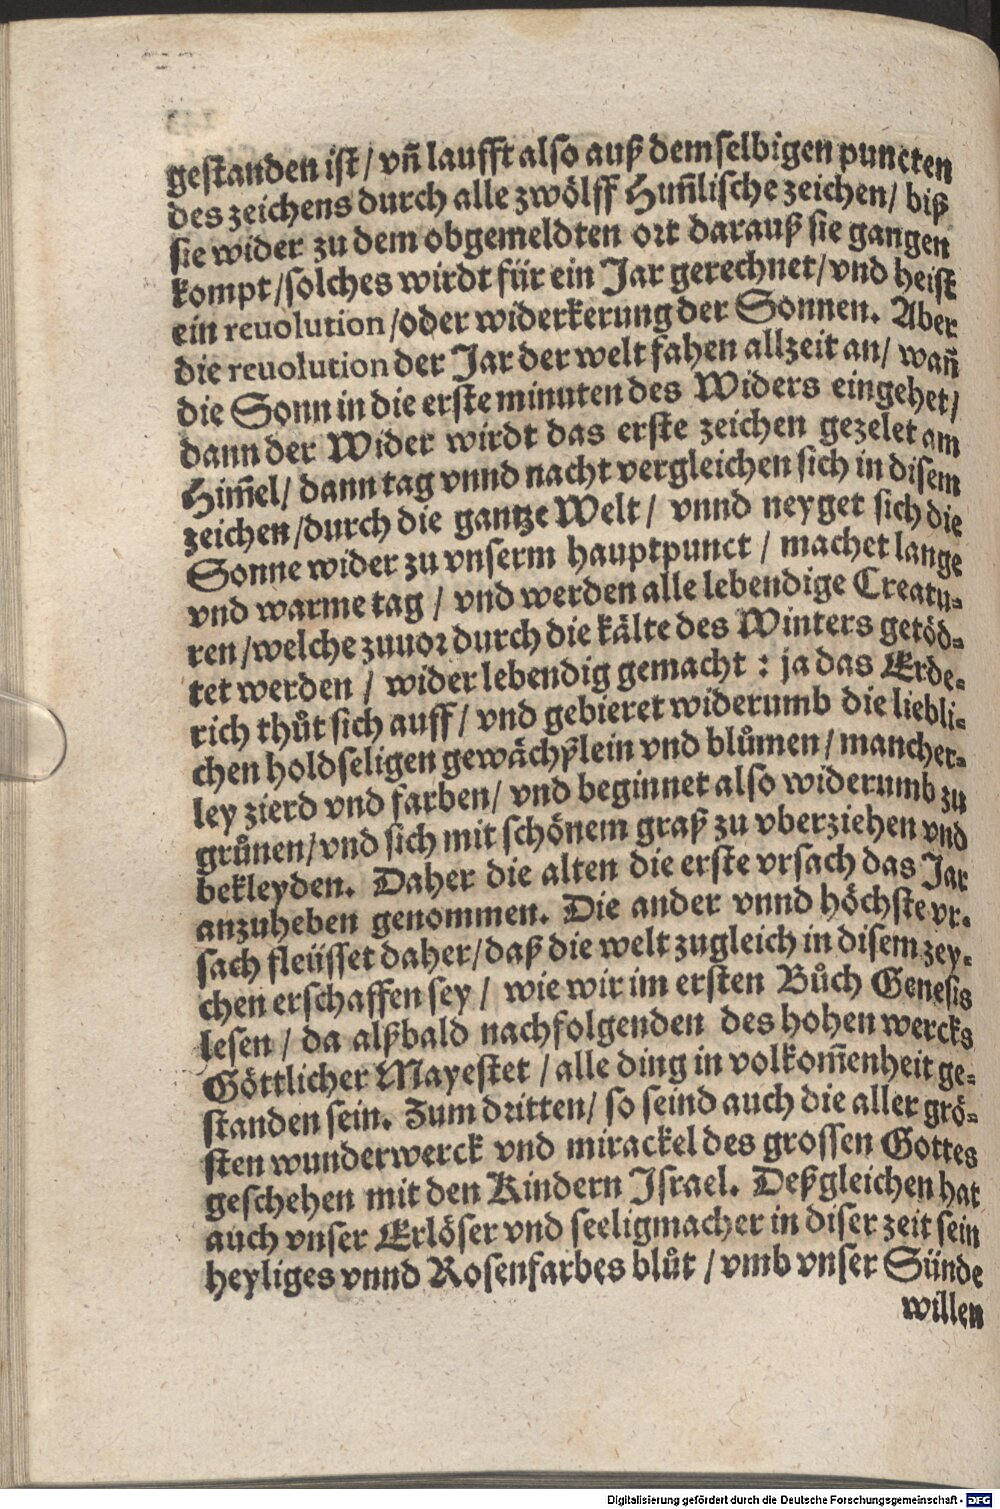 gestanden ist / vñ laufft also auß demselbigen puncten
des zeichens durch alle zwölff Him̃lische zeichen / biß
sie wider zu dem obgemeldten ort darauß sie gangen
kompt / solches wirdt für ein Jar gerechnet / vnd heist
ein reuolution / oder widerkerung der Sonnen. Aber
die reuolution der Jar der welt fahen allzeit an / wañ
die Sonn in die erste minuten des Widers eingehet /
dann der Wider wirdt das erste zeichen gezelet am
Him̃el / dann tag vnnd nacht vergleichen sich in disem
zeichen / durch die gantze Welt / vnnd neyget sich die
Sonne wider zu vnserm hauptpunct / machet lange
vnd warme tag / vnd werden alle lebendige Creatu-
ren / welche zuuor durch die kälte des Winters getöd-
tet werden / wider lebendig gemacht : ja das Erde-
rich thůt sich auff / vnd gebieret widerumb die liebli-
chen holdseligen gewächßlein vnd blůmen / mancher-
ley zierd vnd farben / vnd beginnet also widerumb zu
grůnen / vnd sich mit schönem graß zu vberziehen vnd
bekleyden. Daher die alten die erste vrsach das Jar
anzuheben genommen. Die ander vnnd höchste vr-
sach fleüsset daher / daß die welt zugleich in disem zey-
chen erschaffen sey / wie wir im ersten Bůch Genesis
lesen / da alßbald nachfolgenden des hohen wercks
Göttlicher Mayestet / alle ding in volkom̃enheit ge-
standen sein. Zum dritten / so seind auch die aller grö-
sten wunderwerck vnd mirackel des grossen Gottes
geschehen mit den Kindern Israel. Deßgleichen hat
auch vnser Erlöser vnd seeligmacher in diser zeit sein
heyliges vnnd Rosenfarbes blůt / vmb vnser Sünde
willen
Digitalisierung gefördert durch die Deutsche Forschungsgemeinschaft - DFG